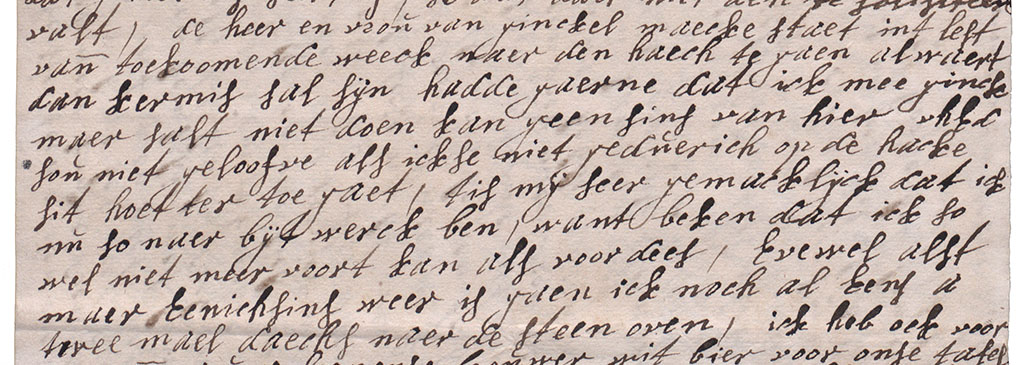 valt, de heer en vrou van ginckel maecke staet int lest
vann toekoomende weeck naer den haech te gaen alwaert
dan kermis sal syn hadde gaerne dat ick mee ginck
maer salt niet doen kan geen sins van hier uhEd
sou niet geloofve als ickse niet geduerich op de hacke
sit hoet ter toe gaet, tis my seer gemacklijck dat ick
nu so naer byt werck ben, want beken dat ick so
wel niet meer voort kan als voor dees, Evewel alst
maer Eenichsins weer is gaen ick noch al Eens a
twee mael daechs naer de steen oven, ick heb oek voor
met bier voor onse tafel